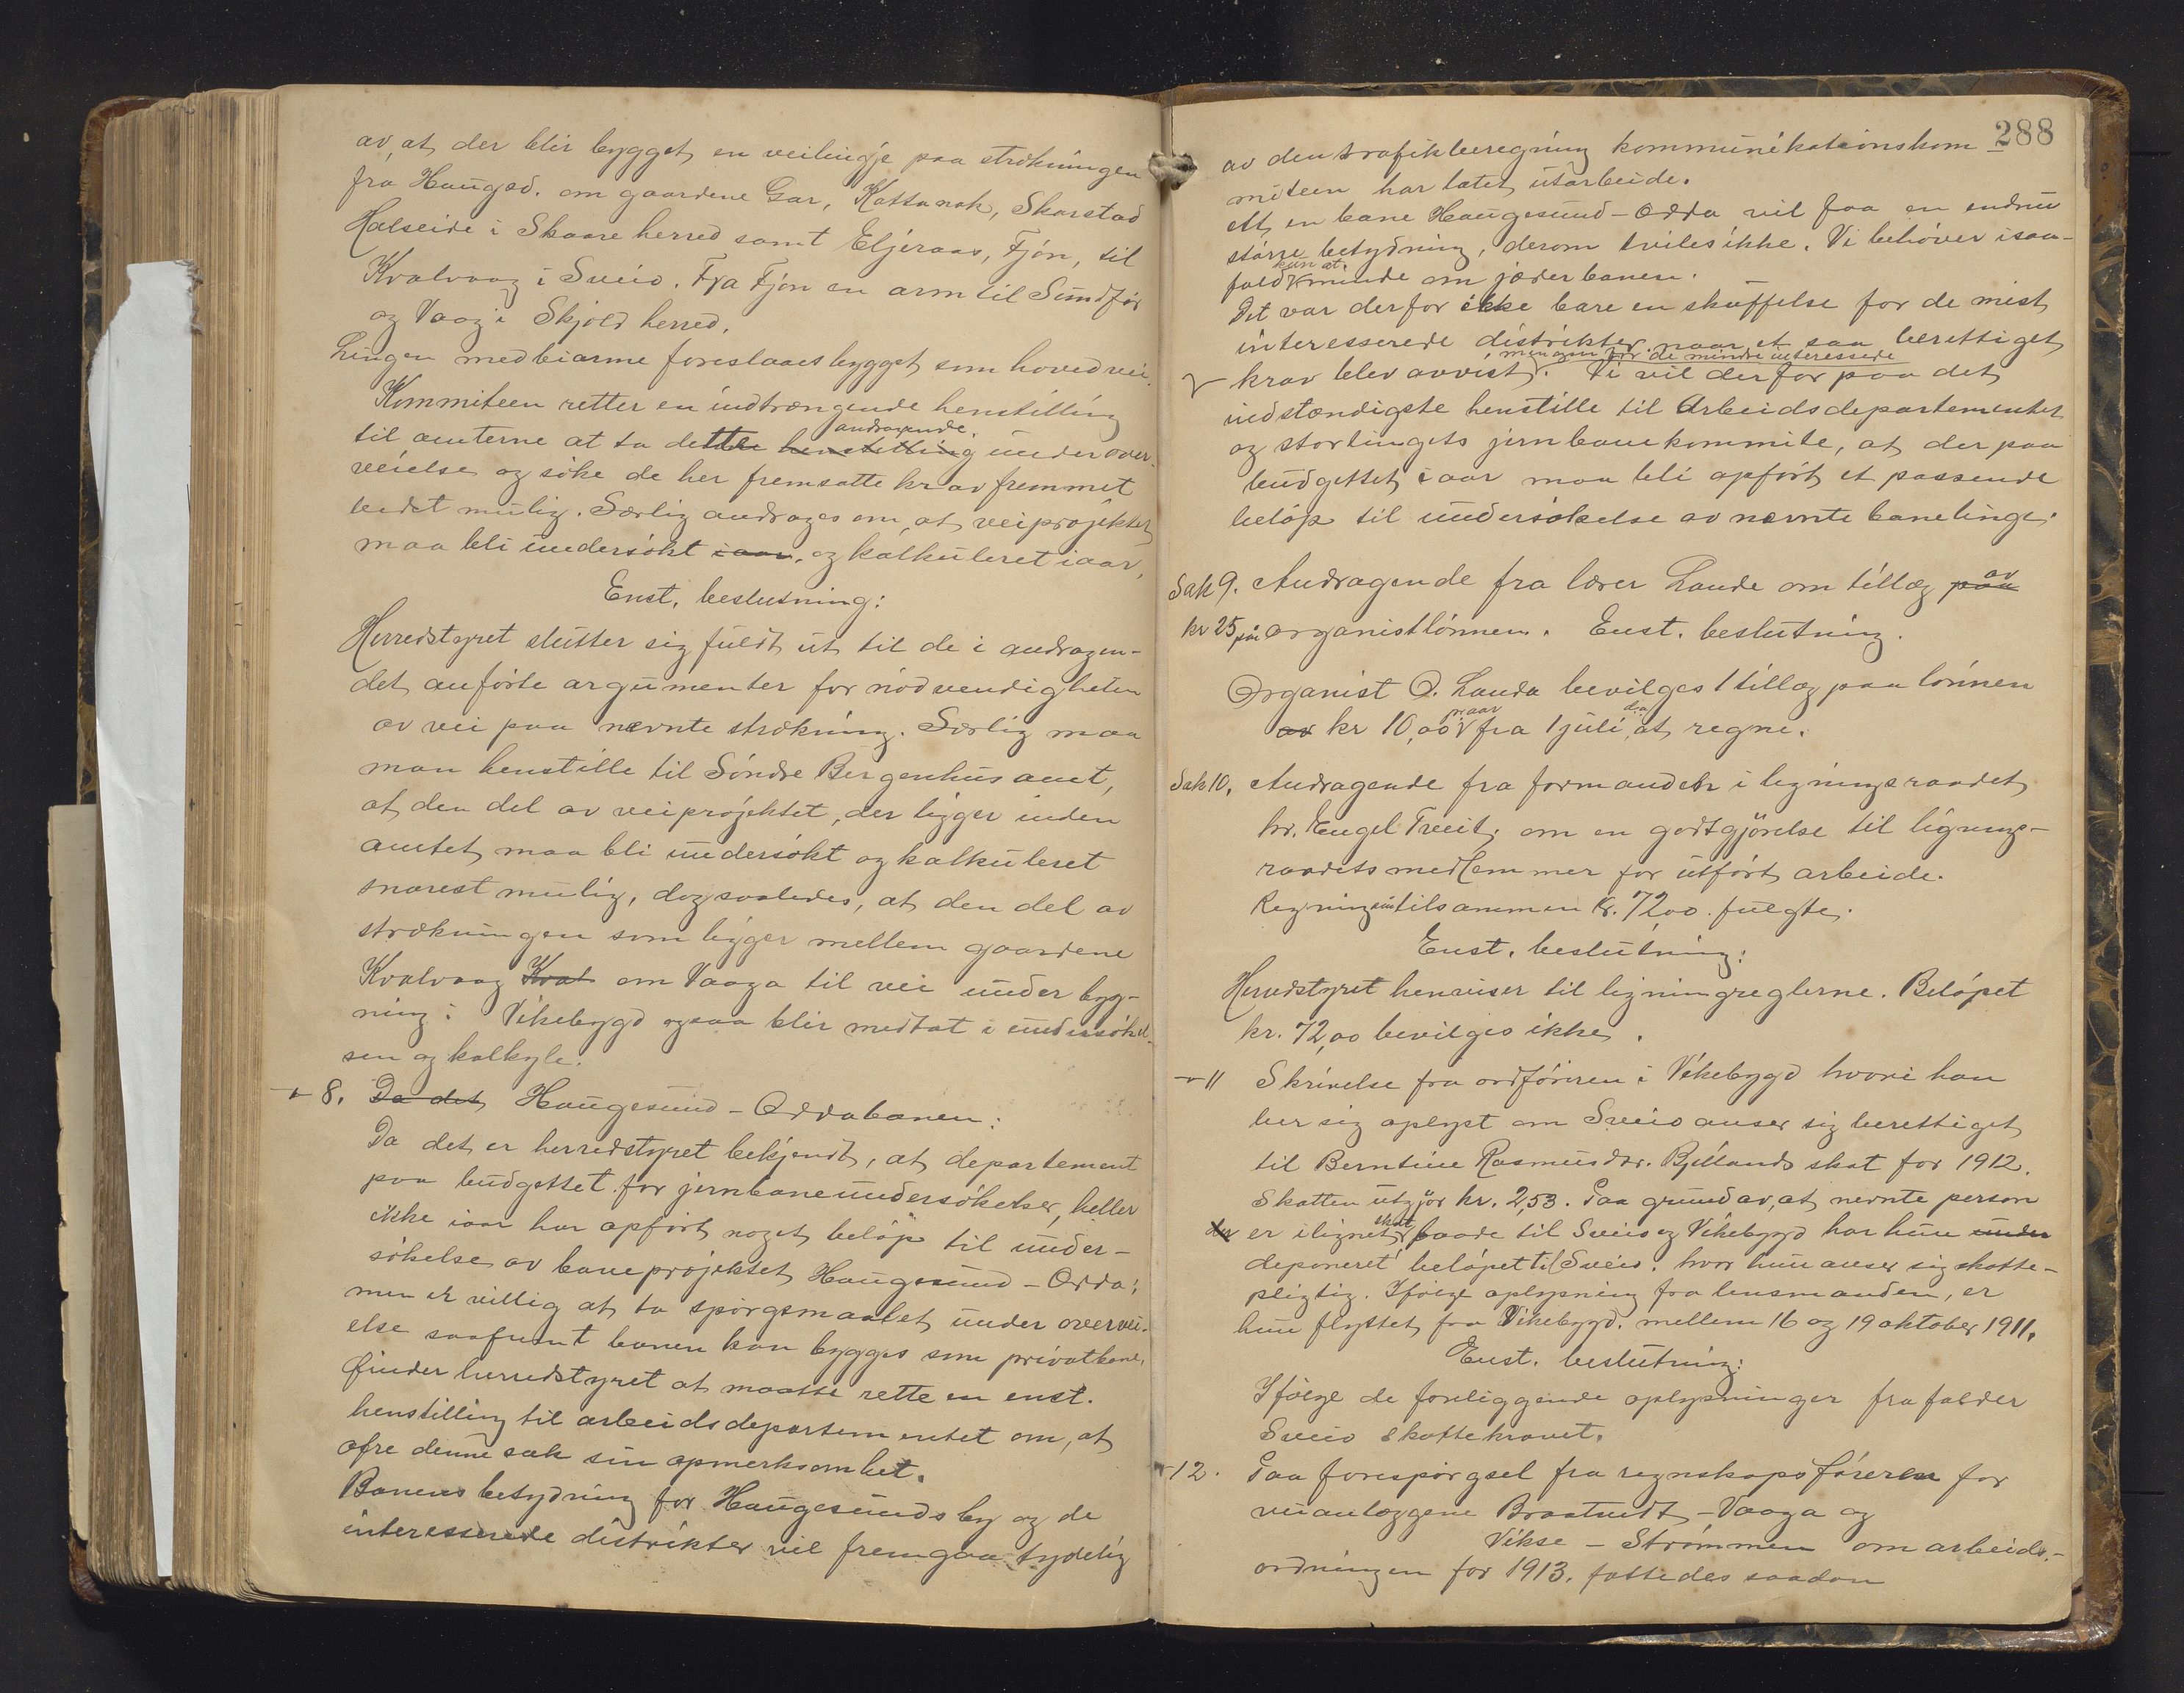 av, at der blir bygget en veilinje paa strekningen
fra Haugsd. om gaardene Gar, Kattanak, Skarstad
Halseide i Skaare herred samt Eljeraas, Fjön, til
Kvalvaag i Sveio. Fra Fjon en arm til Sundför
og Vaag i Skjold herred.
Lingen med biarme foreslaaes bygget som hovedvei.
Kommiteen retter en indtrængende henstilling
til amterne at ta dette henstilling andragende under over-
veielse og söke de her fremsatte krav fremmet
bedst mulig. Særlig andrages om, at veiprojektet
maa bli undersökt iaar, og kalkuleret iaar,
Enst. beslutning:
Herredstyret slutter sig fuldt ut til de i andragen-
det anförte argumenter for nödvendigheten
av vei paa nævnte strekning. Særlig maa
man henstille til Söndre Bergenhus amt,
at den del av veiprojektet, der ligger inden
amtet maa bli undersökt og kalkuleret
snarest mulig, dog saaledes, at den del av
strækningen som ligger mellem gaardene
Kvalvaag Kval om Vaaga til vei under byg-
ning i Vikebygd ogsaa blir medtat i undersökel-
sen og kalkyle.
" 8. Da det Haugesund - Oddabanen:
Da det er herredstyret bekjendt, at departement
paa budgettet for jernbaneundersökelser, heller
ikke iaar har opfört noget belöp til under-
sökelse av baneprojektet Haugesund - Odda;
men er villig at ta spörgsmaalet under overvei-
else saafremt banen kan bygges som privatbane,
finder herredstyret at maatte rette en enst.
henstilling til arbeidsdepartementet om, at
ofre denne sak sin opmerksomhet.
Banens betydning for Haugesunds by og de
interesserede distrikter vil fremgaa tydelig
288
av den trafikberegning kommunikationskom-
miteen har latet utarbeide.
At en bane Haugesund - Odda vil faa en endnu
större betydning, derom tviles ikke. Vi behöver isaa-
fald kun at minde om jæderbanen.
Det var derfor ikke bare en skuffelse for de mest
interesserede distrikter naar et saa berettiget
krav blev avvist, men ogsaa for de mindre interessede. Vi vil derfor paa det
indstændigste henstille til Arbeidsdepartementet
og stortingets jernbanekommite, at der paa
budgettet iaar maa bli opfört et passende
belöp til undersökelse av nævnte banelinge.
Sak 9. Andragende fra lærer Lande om tillæg paa av
kr 25 på organistlönnen. Enst. beslutning.
Organist O. Landa bevilges 1 tillæg paa lönnen
av kr 10,00 p. aar fra 1 juli d.a. at regne.
Sak 10. Andragende fra formanden i ligningsraadet
hr. Engel Tveit, om en godtgjörelse til lignings-
raadets medlemmer for utfört arbeide.
Regningen tilsammen Kr. 72,00 fulgte.
Enst. beslutning:
Herredstyret henviser til ligningreglerne. Belöpet
kr. 72,00 bevilges ikke.
" 11 Skrivelse fra ordföreren i Vikebygd hvori han
ber sig oplyst om Sveio anser sig berettiget
til Berntine Rasmusdtr. Bjellands skat for 1912.
Skatten utgjör kr. 2,53. Paa grund av, at nevnte person
der er ilignet skat baade til Sveio og Vikebygd har hun under
deponeret belöpet til Sveio, hvor hun anser sig skatte-
pligtig. Ifölge oplysning fra lensmanden, er
hun flyttet fra Vikebygd mellem 16 og 19 oktober 1911.
Enst. beslutning:
Ifölge de foreliggende oplysninger frafalder
Sveio skattekravet.
" 12. Paa forespörgsel fra regnskapsföreren for
veianlæggene Braatvedt - Vaaga og
Vikse - Strömmen om arbeids-
ordningen for 1913. fattedes saadan